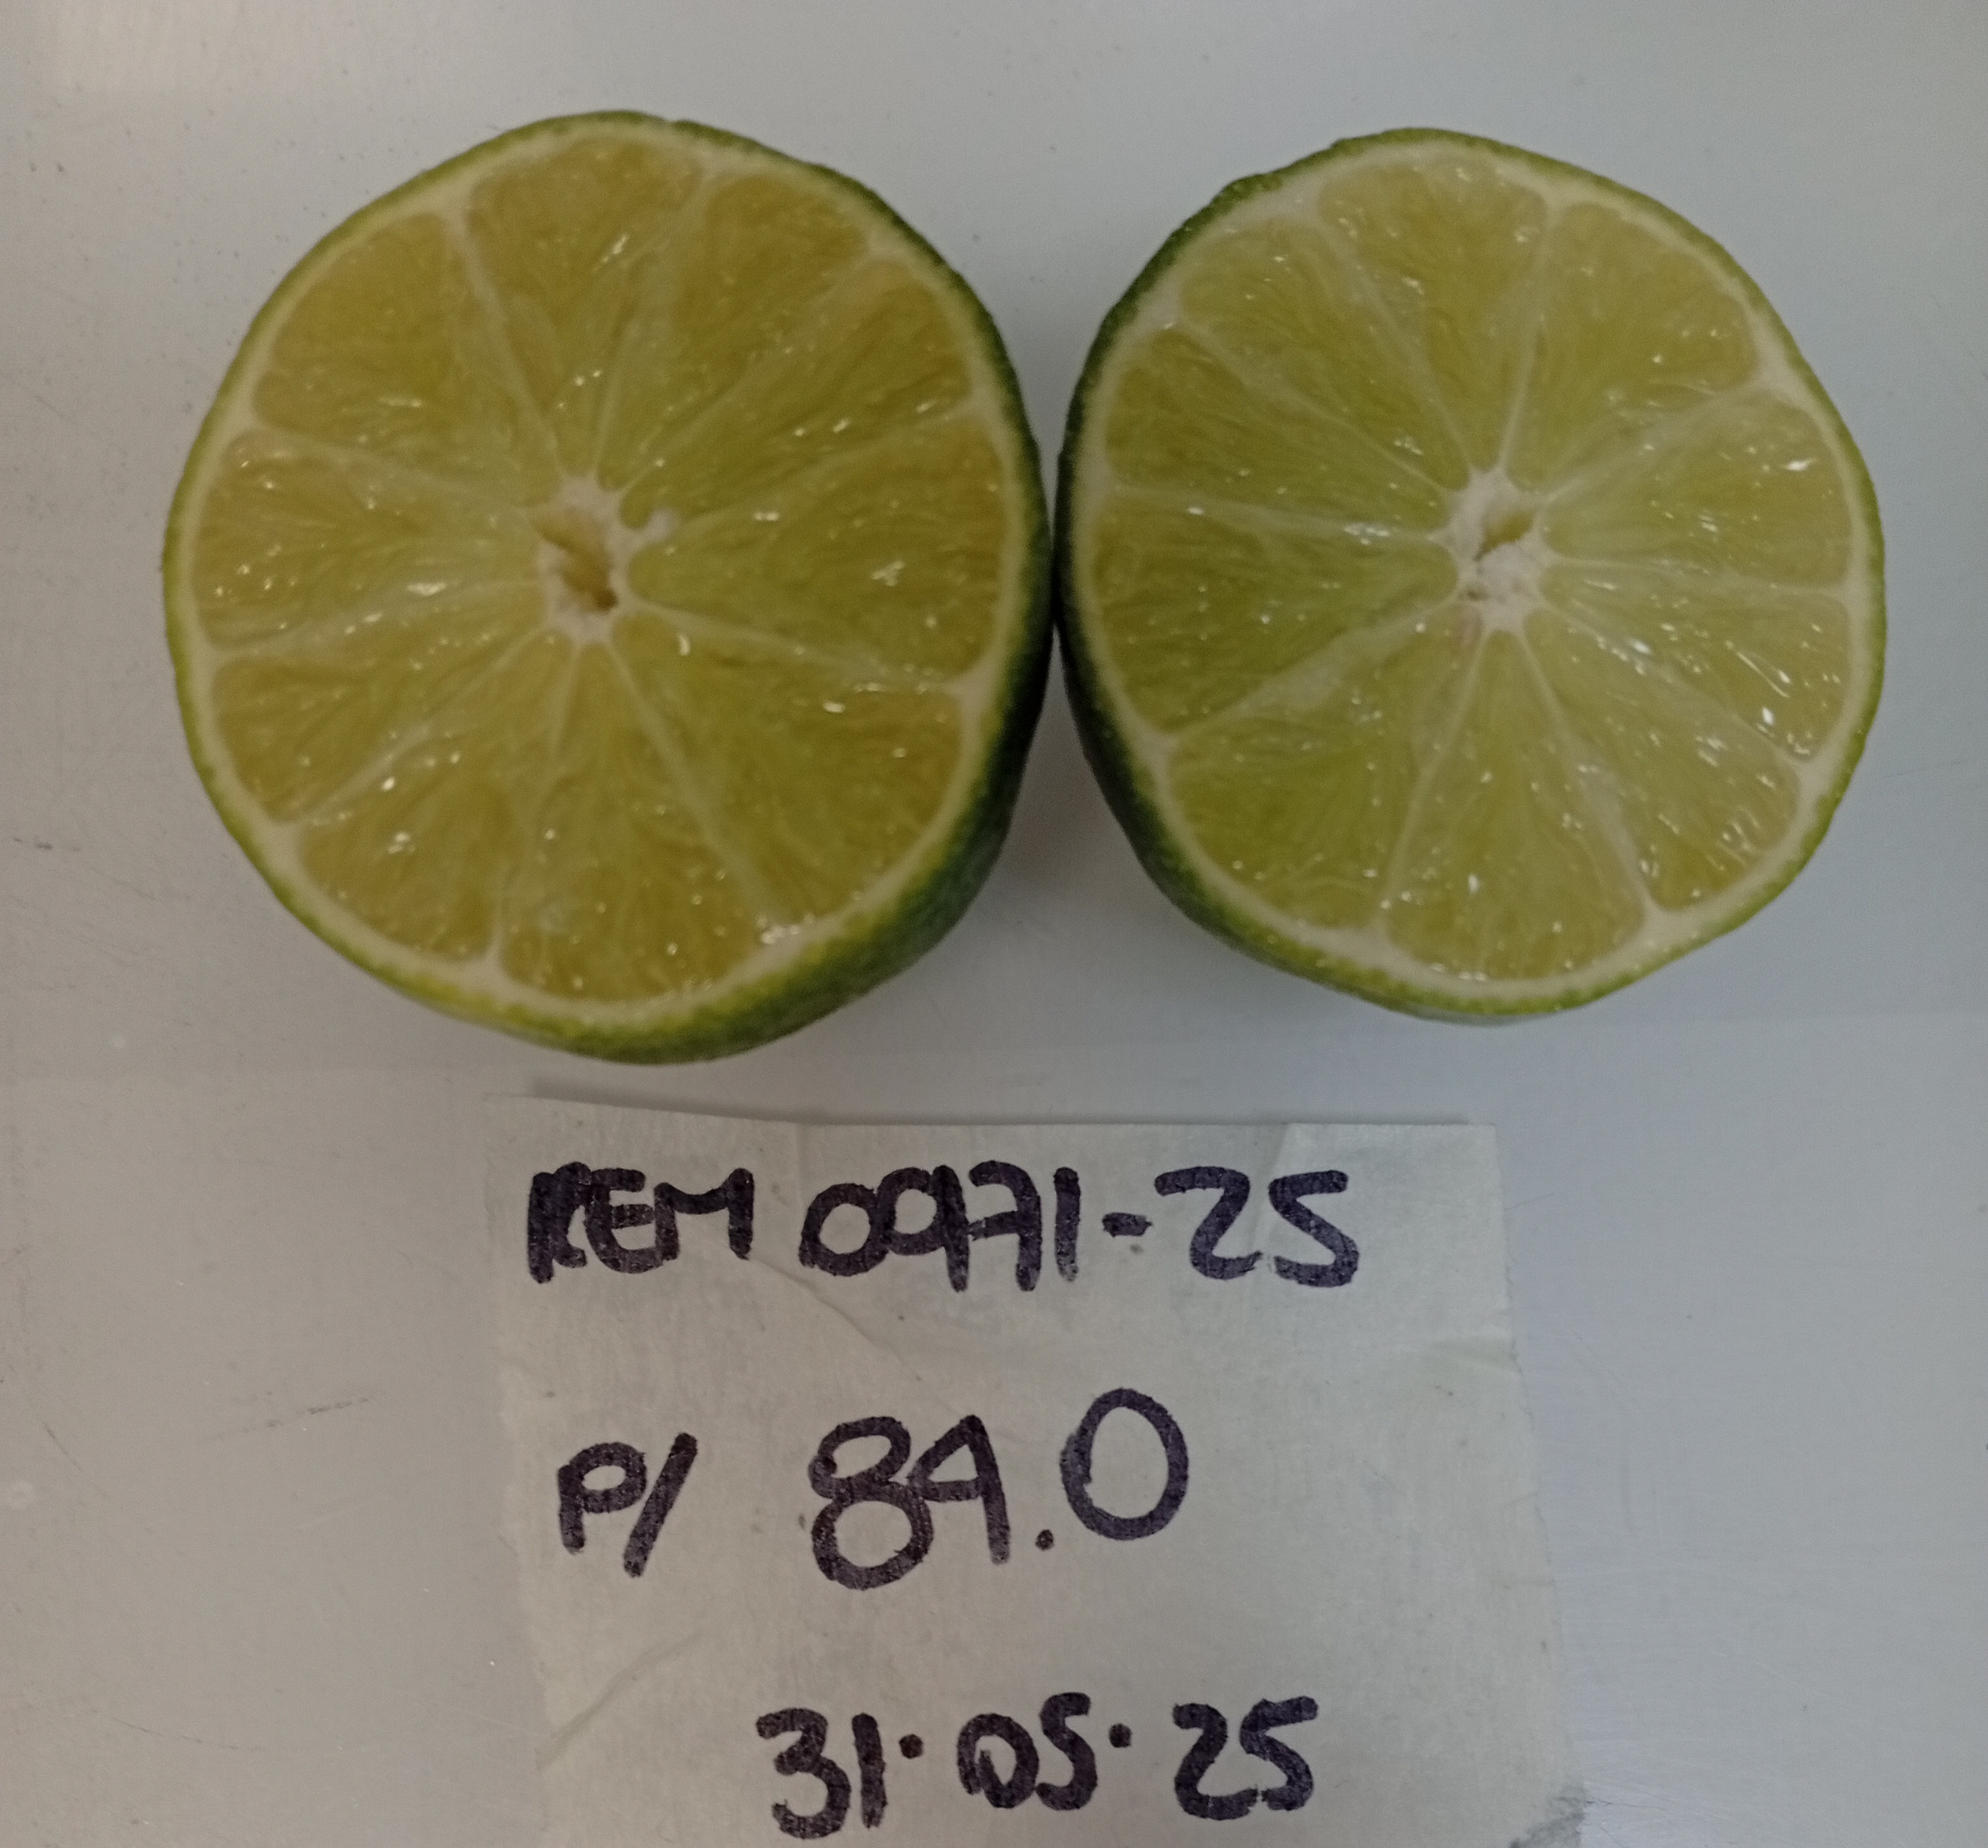 REM 0971-25
P/ 84.0
31·05·25